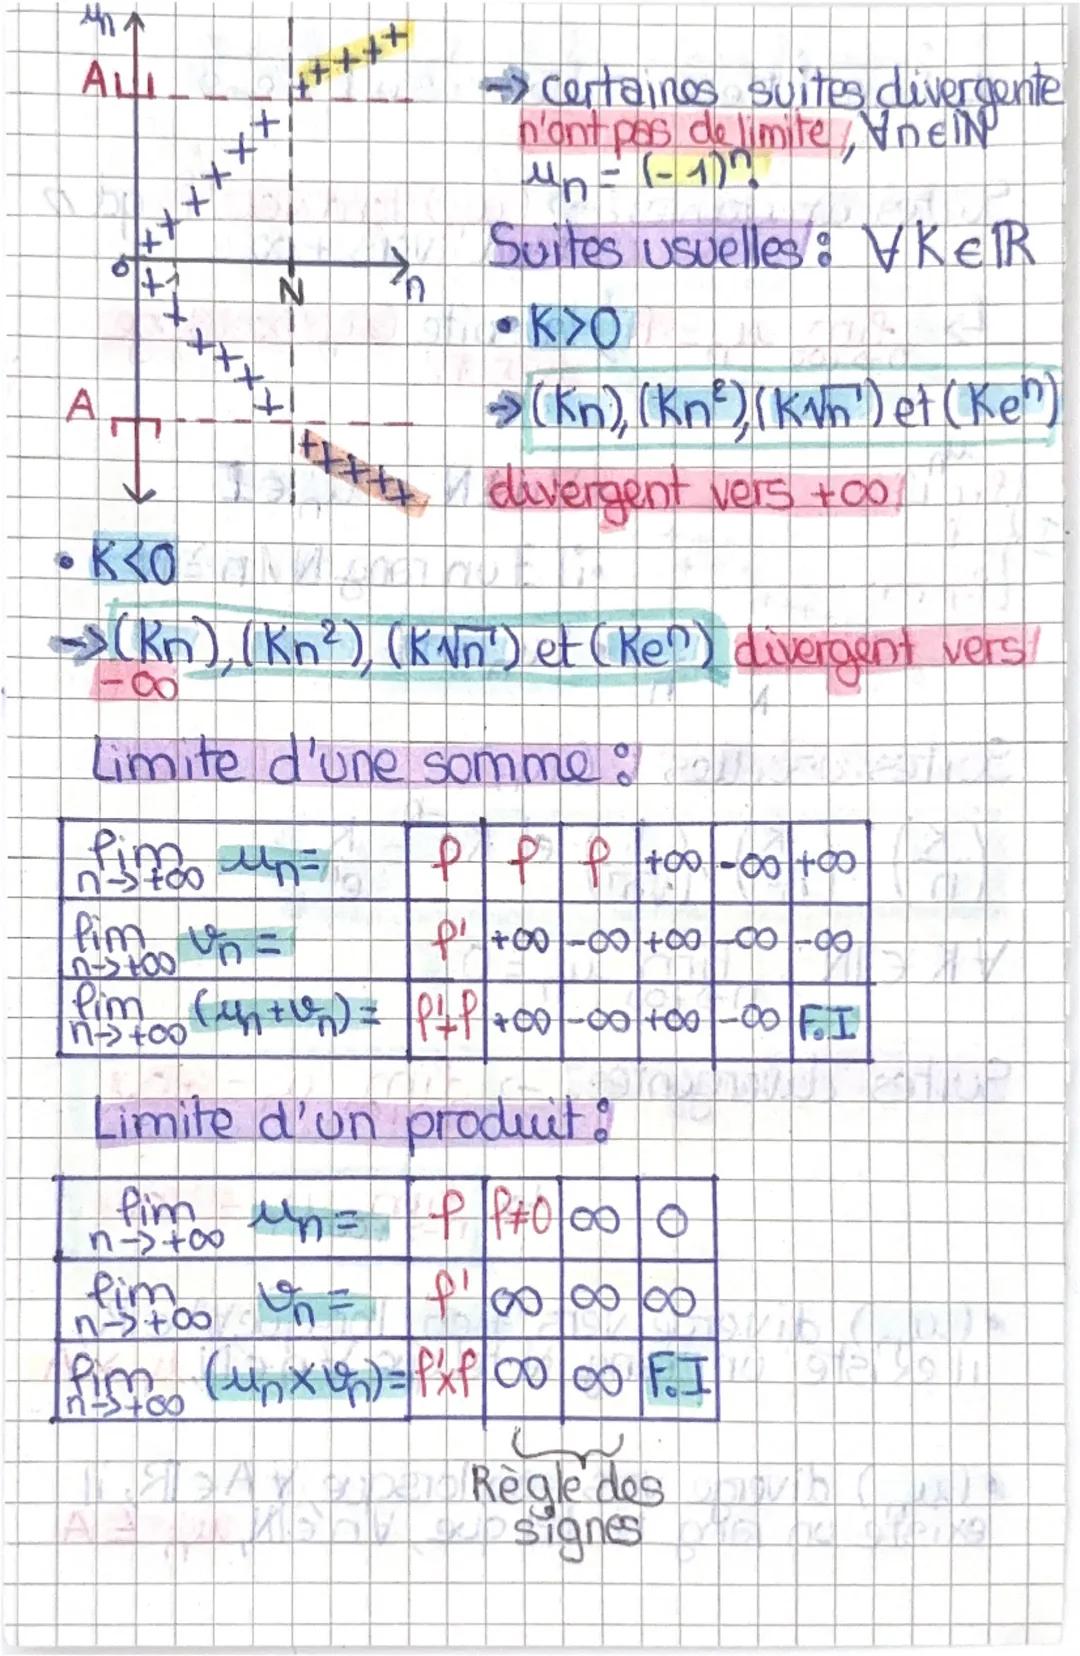 un
A
0
1
N
n
A
→ certaines suites divergente
n'ont pas de limite, ∀n∈ℕ
un = (-1)^n.
Suites usuelles : ∀ K ∈ ℝ
• K>0
→ (Kn), (Kn²), (K√n) et (Ke^n)
divergent vers +∞
• K<0
→ (Kn), (Kn²), (K√n) et (Ke^n) divergent vers
-∞
Limite d'une somme :
lim n→+∞ un= | ℓ | ℓ | ℓ | +∞ | -∞ | +∞
lim n→+∞ vn= | ℓ' | +∞ | -∞ | +∞ | -∞ | -∞
lim n→+∞ (un+vn)= | ℓ'+ℓ | +∞ | -∞ | +∞ | -∞ | F.I
Limite d'un produit :
lim n→+∞ un= | ℓ | ℓ≠0 | ∞ | 0
lim n→+∞ vn= | ℓ' | ∞ | ∞ | ∞
lim n→+∞ (un×vn)= | ℓ'×ℓ | ∞ | ∞ | F.I
Règle des
signes